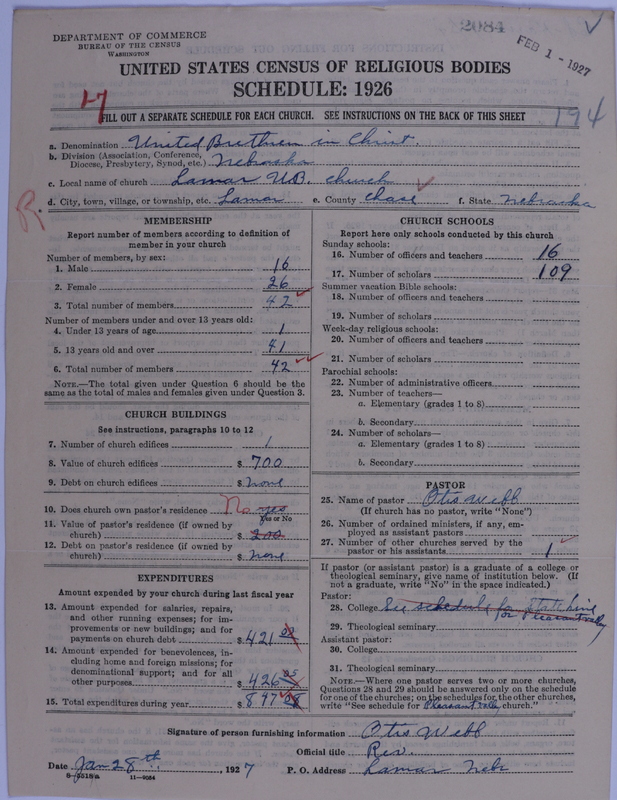 2084
FEB 1 - 1927
DEPARTMENT OF COMMERCE
BUREAU OF THE CENSUS
WASHINGTON
UNITED STATES CENSUS OF RELIGIOUS BODIES
SCHEDULE: 1926
47
FILL OUT A SEPARATE SCHEDULE FOR EACH CHURCH. SEE INSTRUCTIONS ON THE BACK OF THIS SHEET
194
a. Denomination United Brethren in Christ.
b. Division (Association, Conference,
Diocese, Presbytery, Synod, etc.) Nebraska
c. Local name of church Lamar U.B. church
d. City, town, village, or township, etc. Lamar e. County Chase f. State Nebraska
R.
MEMBERSHIP
Report number of members according to definition of
member in your church
Number of members, by sex:
1. Male 16
2. Female 26
3. Total number of members 42
Number of members under and over 13 years old:
4. Under 13 years of age 1
5. 13 years old and over 41
6. Total number of members 42
NOTE.—The total given under Question 6 should be the
same as the total of males and females given under Question 3.
CHURCH BUILDINGS
See instructions, paragraphs 10 to 12
7. Number of church edifices 1
8. Value of church edifices $ 700
9. Debt on church edifices $ none
10. Does church own pastor's residence No yes
Yes or No
11. Value of pastor's residence (if owned by
church) $ 200
12. Debt on pastor's residence (if owned by
church) $ none
EXPENDITURES
Amount expended by your church during last fiscal year
13. Amount expended for salaries, repairs,
and other running expenses; for im-
provements or new buildings; and for
payments on church debt $ 421
14. Amount expended for benevolences, in-
cluding home and foreign missions; for
denominational support; and for all
other purposes $ 426
15. Total expenditures during year $ 847
CHURCH SCHOOLS
Report here only schools conducted by this church
Sunday schools:
16. Number of officers and teachers 16
17. Number of scholars 109
Summer vacation Bible schools:
18. Number of officers and teachers
19. Number of scholars
Week-day religious schools:
20. Number of officers and teachers
21. Number of scholars
Parochial schools:
22. Number of administrative officers
23. Number of teachers—
a. Elementary (grades 1 to 8)
b. Secondary
24. Number of scholars—
a. Elementary (grades 1 to 8)
b. Secondary
PASTOR
25. Name of pastor Otis Webb
(If church has no pastor, write "None")
26. Number of ordained ministers, if any, em-
ployed as assistant pastors
27. Number of other churches served by the
pastor or his assistants 1
If pastor (or assistant pastor) is a graduate of a college or
theological seminary, give name of institution below. (If
not a graduate, write "No" in the space indicated.)
Pastor:
28. College See schedule for State line
for Pleasant valley
29. Theological seminary
Assistant pastor:
30. College
31. Theological seminary
NOTE.—Where one pastor serves two or more churches,
Questions 28 and 29 should be answered only on the schedule
for one of the churches; on the schedules for the other churches,
write "See schedule for Pleasant valley church."
Signature of person furnishing information Otis Webb
Official title Rev.
Date Jan 28th, 1927 P. O. Address Lamar Nebr
8-5518a 11-9084